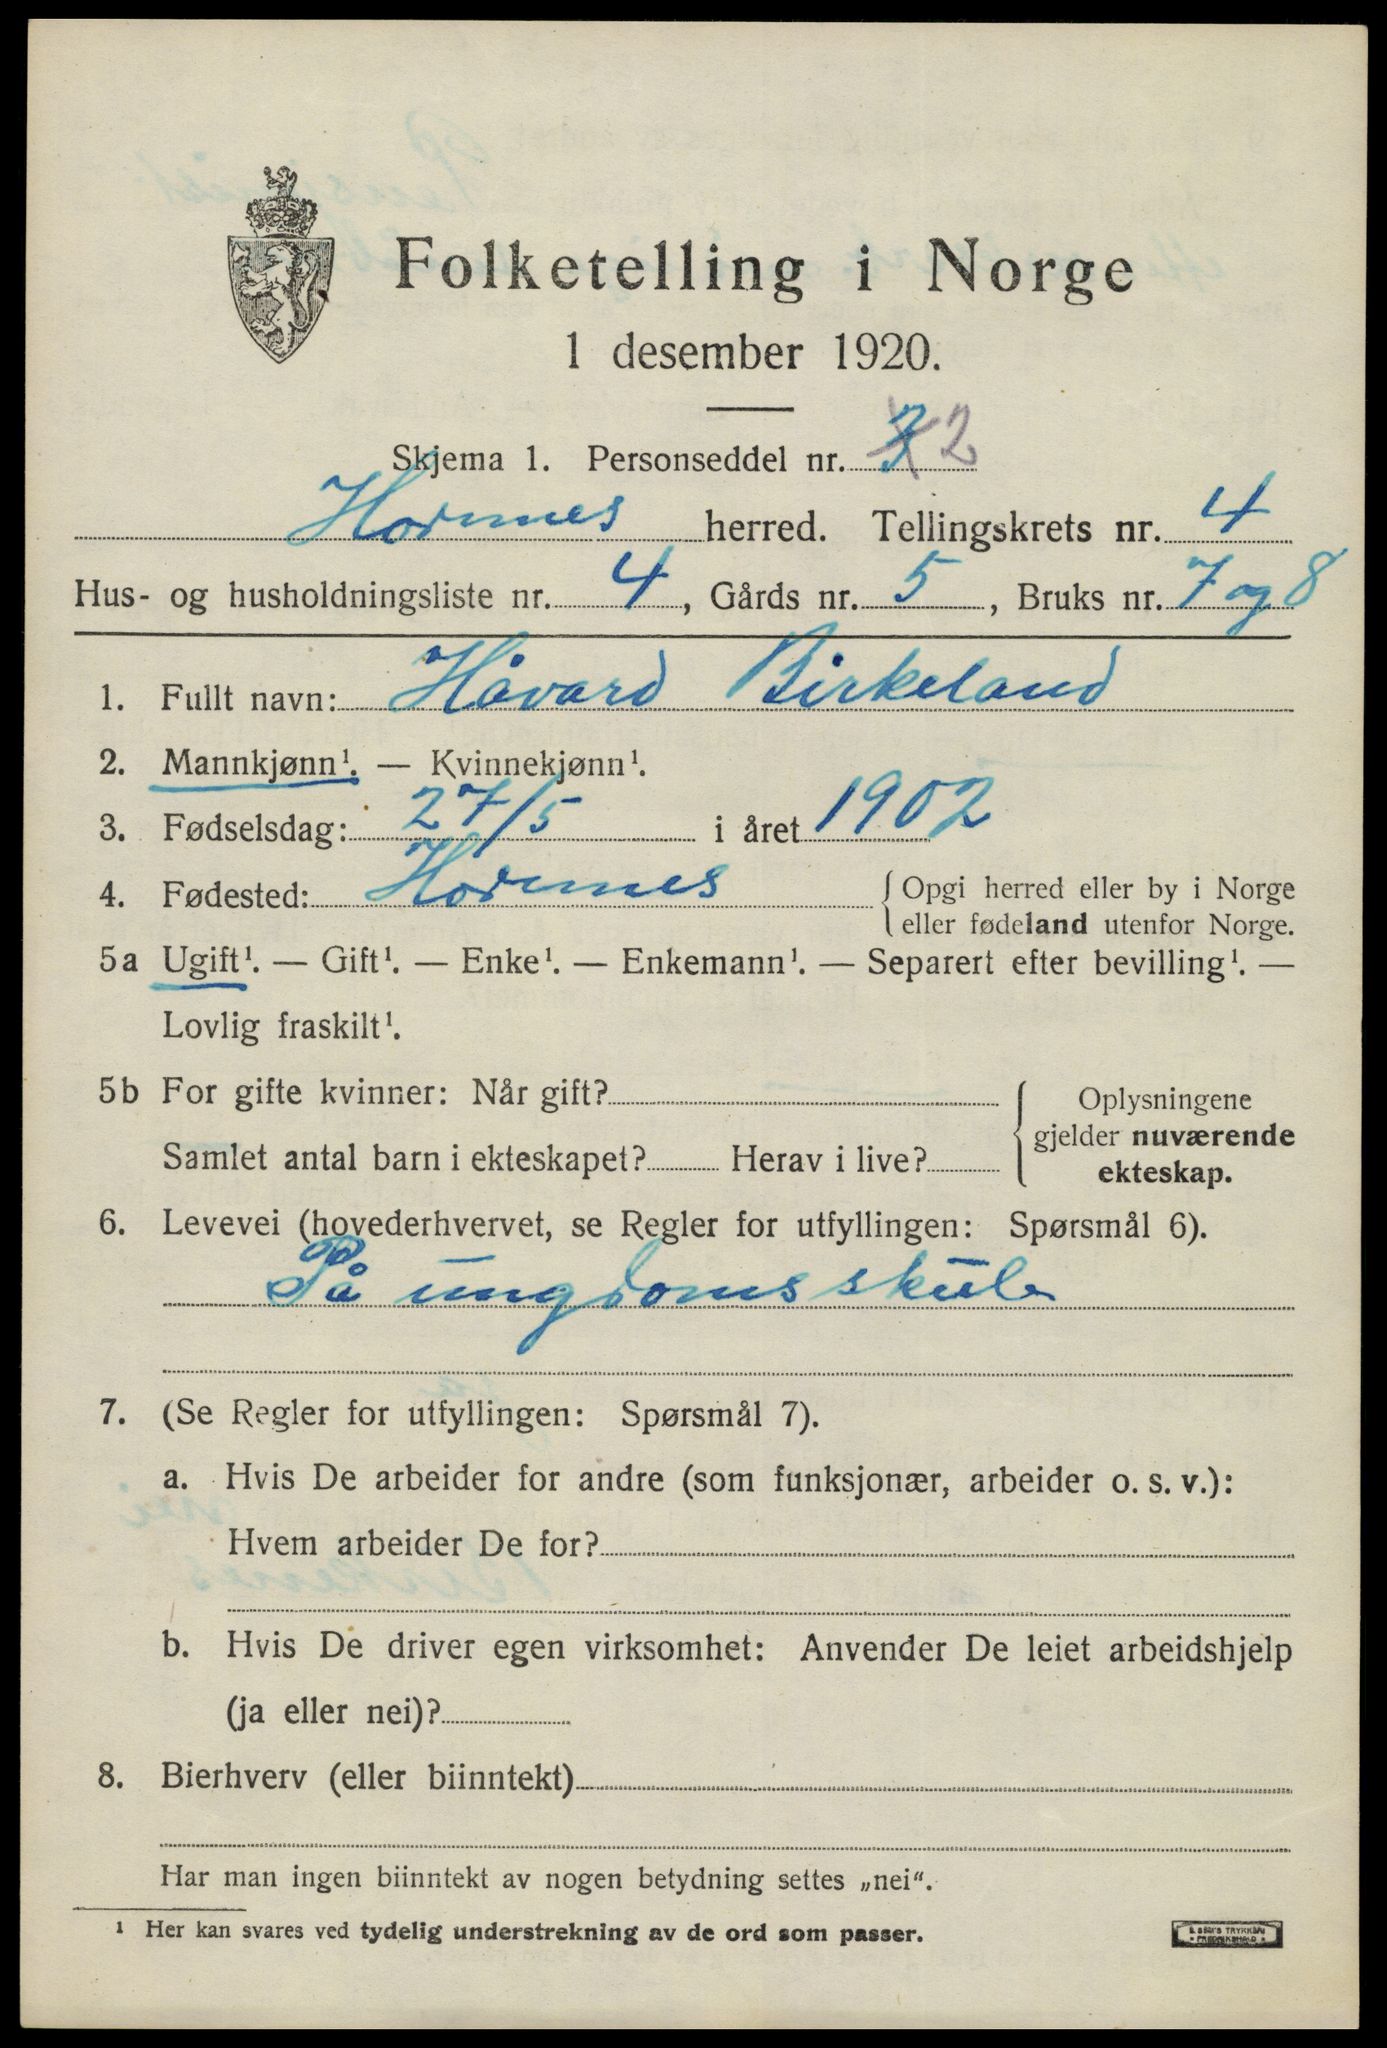 Folketelling i Norge
1 desember 1920.
Skjema 1. Personseddel nr. 3 2
Hornnes herred. Tellingskrets nr. 4
Hus- og husholdningsliste nr. 4, Gårds nr. 5, Bruks nr. 7 og 8
1. Fullt navn: Håvard Birkeland
2. Mannkjønn¹. — Kvinnekjønn¹.
3. Fødselsdag: 27/5 i året 1902
4. Fødested: Hornnes { Opgi herred eller by i Norge
eller fødeland utenfor Norge.
5a Ugift¹. — Gift¹. — Enke¹. — Enkemann¹. — Separert efter bevilling¹. —
Lovlig fraskilt¹.
5b For gifte kvinner: Når gift?
Samlet antal barn i ekteskapet? Herav i live?
Oplysningene
gjelder nuværende
ekteskap.
6. Levevei (hovederhvervet, se Regler for utfyllingen: Spørsmål 6).
På ungdomsskule
7. (Se Regler for utfyllingen: Spørsmål 7).
a. Hvis De arbeider for andre (som funksjonær, arbeider o. s. v.):
Hvem arbeider De for?
b. Hvis De driver egen virksomhet: Anvender De leiet arbeidshjelp
(ja eller nei)?
8. Bierhverv (eller biinntekt)
Har man ingen biinntekt av nogen betydning settes „nei“.
¹ Her kan svares ved tydelig understrekning av de ord som passer.